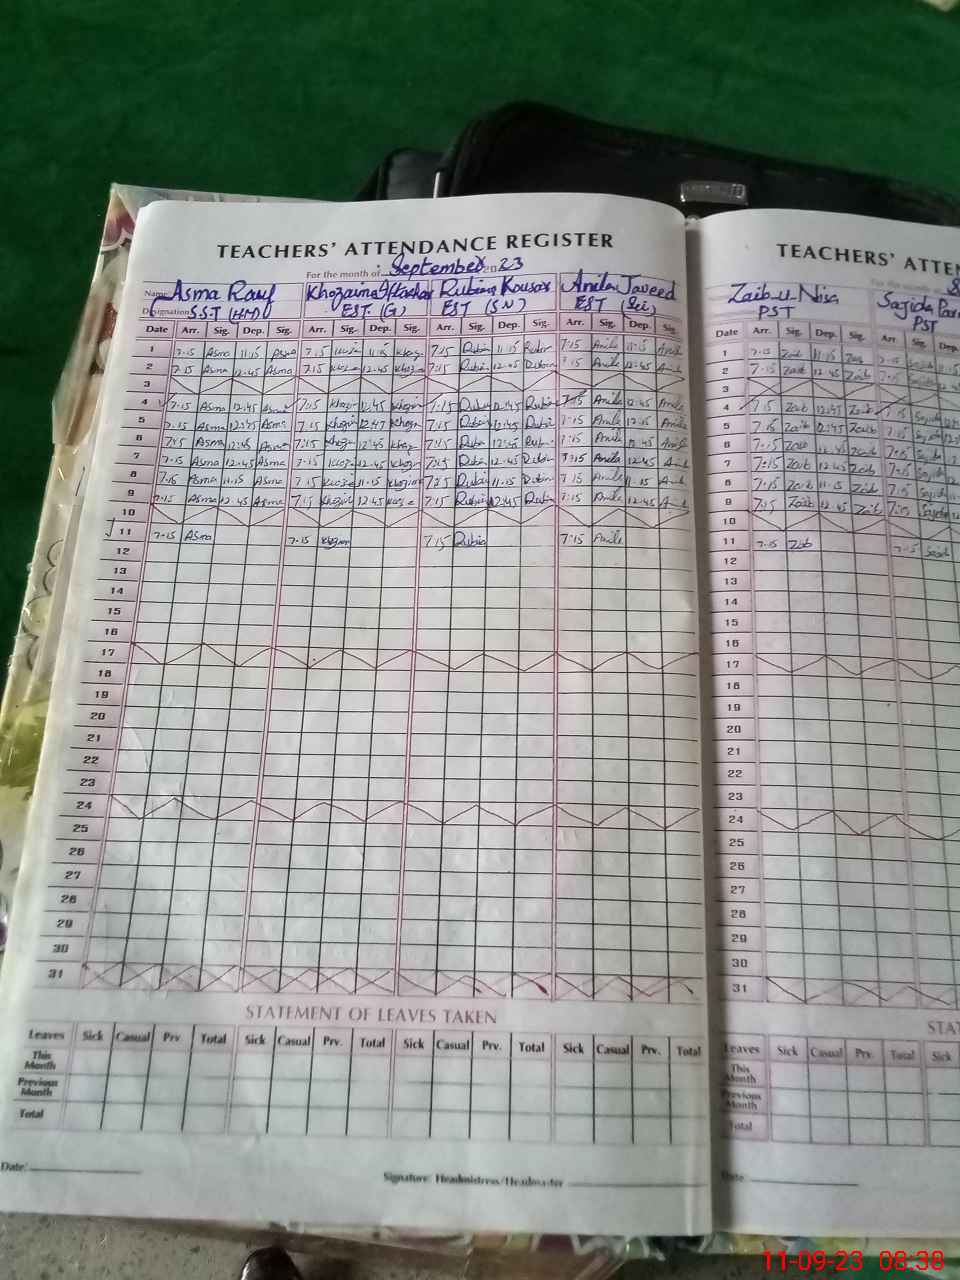 TEACHERS' ATTENDANCE REGISTER
For the month of September 2023
Name Asma Rauf Khozaima Iftikhar Rubina Kousar Anila Javeed
Designation SST (HM) EST (G) EST (S.N) EST (Sci)
Date Arr. Sig. Dep. Sig. Arr. Sig. Dep. Sig. Arr. Sig. Dep. Sig. Arr. Sig. Dep. Sig.
1 7.15 Asma 11.15 Asma 7.15 11.15 7:15 Rubin 11.15 Rubin 7:15 Anila 11:15
2 7.15 Asma 12.45 Asma 7.15 12.45 7:15 Rubin 12.45 Rubin 7:15 Anila 12.45
3
4 7.15 Asma 12.45 Asma 7:15 12.45 7:15 Rubin 12.45 Rubin 7:15 Anila 12.45
5 7.15 Asma 12.45 Asma 7.15 7:15 Rubin 12.45 Rubin 7.15 Anila
6 7.15 Asma 12.45 Asma 7:15 12.45 7:15 Rubin 12.45 Rubin 7.15 Anila 12.45
7 7.15 Asma 12.45 Asma 7.15 12.45 7:15 Rubin 12.45 Rubin 7:15 Anila 12.45
8 7.15 Asma 11.15 Asma 7.15 11.15 7:15 Rubin 11.15 Rubin 7.15 Anila 11.15
9 7.15 Asma 12.45 Asma 7.15 12.45 7:15 Rubin 12.45 Rubin 7:15 Anila 12.45
10
11 7.15 Asma 7.15 7.15 Rubia 7:15 Anila
12
13
14
15
16
17
18
19
20
21
22
23
24
25
26
27
28
29
30
31
STATEMENT OF LEAVES TAKEN
Leaves Sick Casual Prv Total Sick Casual Prv. Total Sick Casual Prv. Total Sick Casual Prv. Total
This Month
Previous Month
Total
Date:
Signature: Headmistress/Headmaster
TEACHERS' ATTEN
For the month of
Zaib-u-Nisa Sajida
PST PST
Date Arr. Sig. Dep. Sig. Arr. Sig. Dep.
1 7.15 Zaib 11.15 Zaib 7.15
2 7.15 Zaib 12.45 Zaib 7.15
3
4 7.15 Zaib 12.45 Zaib 7.15
5 7.15 Zaib 12.45 Zaib 7.15
6 7.15 Zaib 12.45 Zaib 7:15
7 7:15 Zaib 12.45 Zaib 7:15
8 7.15 Zaib 11.15 Zaib 7.15
9 7:15 Zaib 12.45 Zaib 7:15
10
11 7.15 Zaib 7.15
12
13
14
15
16
17
18
19
20
21
22
23
24
25
26
27
28
29
30
31
STAT
Leaves Sick Casual Prv. Total Sick
This Month
Previous Month
Total
Date
11-09-23 08:38